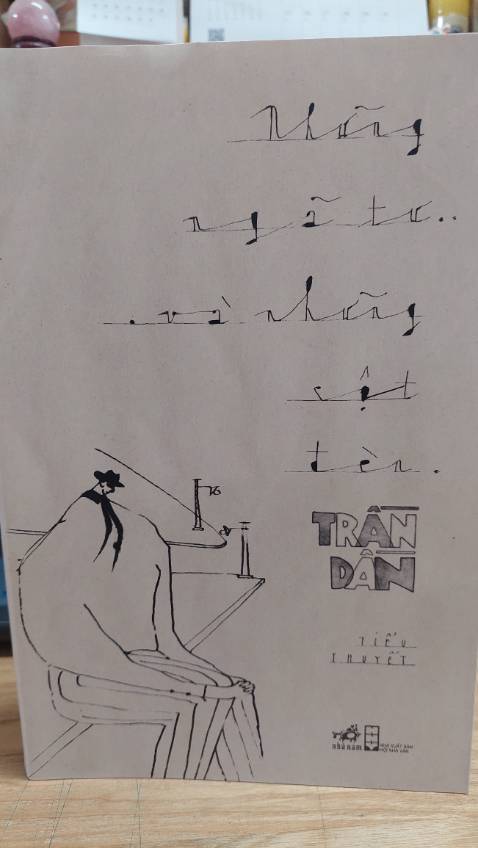 Những
ngã tư..
.và những
cột
đèn.
TRẦN
DẦN
TIỂU
THUYẾT
nhã nam
NHÀ XUẤT BẢN
HỘI NHÀ VĂN